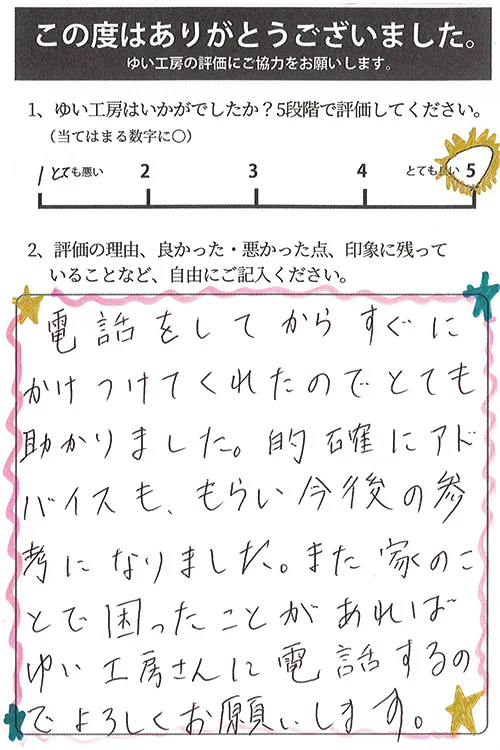 この度はありがとうございました。
ゆい工房の評価にご協力をお願いします。
1、ゆい工房はいかがでしたか？5段階で評価してください。
（当てはまる数字に○）
1 とても悪い 2 3 4 とても良い 5
2、評価の理由、良かった・悪かった点、印象に残って
いることなど、自由にご記入ください。
電話をしてからすぐに
かけつけてくれたのでとても
助かりました。的確にアド
バイスも、もらい今後の参
考になりました。また家のこ
とで困ったことがあれば
ゆい工房さんに電話するの
でよろしくお願いします。